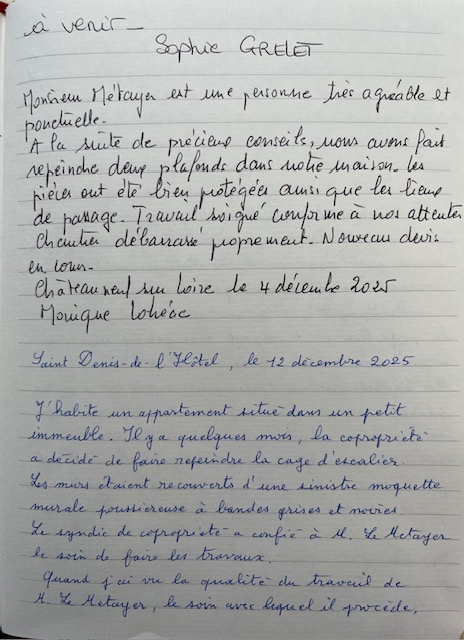 à venir_
Sophie GRELET
Monsieur Métayer est une personne très agréable et
ponctuelle.
A la suite de précieux conseils, nous avons fait
repeindre deux plafonds dans notre maison. Les
pièces ont été bien protégées ainsi que les lieux
de passage. Travail soigné conforme à nos attentes
Chantier débarrassé proprement. Nouveau devis
en cours.
Châteauneuf sur Loire le 4 décembre 2025
Monique
Saint Denis-de-l'Hôtel, le 12 décembre 2025
J'habite un appartement situé dans un petit
immeuble. Il y a quelques mois, la copropriété
a décidé de faire repeindre la cage d'escalier.
Les murs étaient recouverts d'une sinistre moquette
murale poussiéreuse à bandes grises et noires.
Le syndic de copropriété a confié à M. Le Metayer
le soin de faire les travaux.
Quand j'ai vu la qualité du travail de
M. Le Metayer, le soin avec lequel il procède,